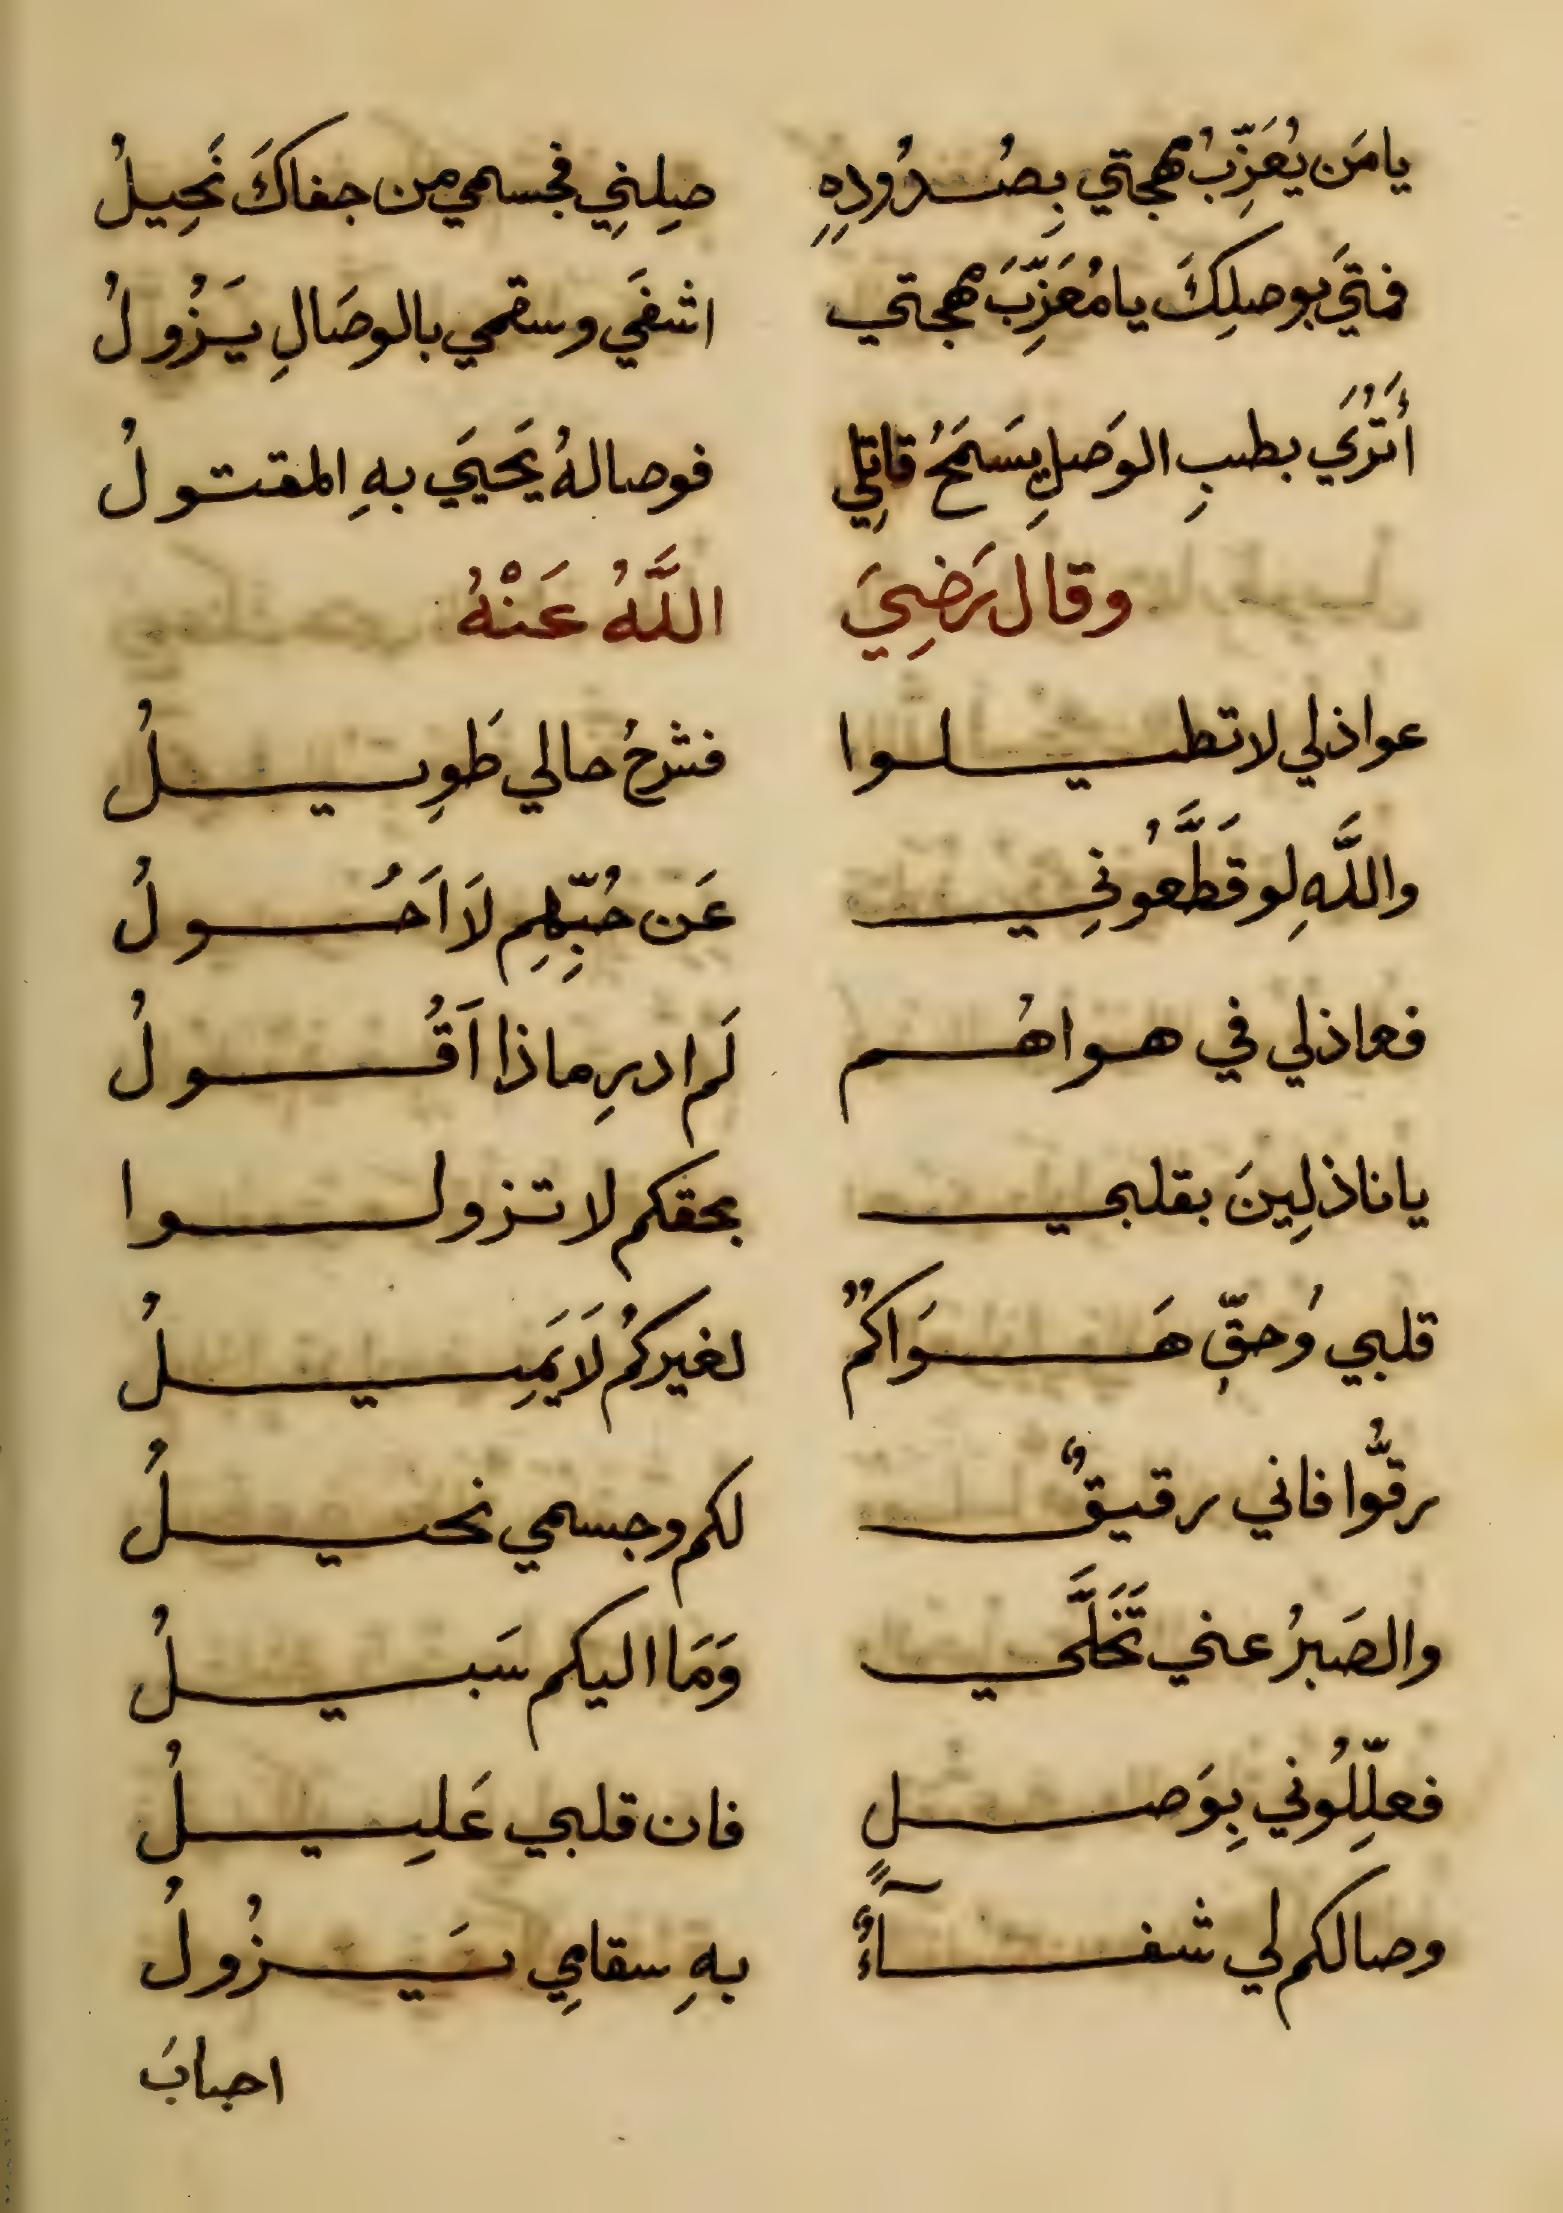 يا مَن يُعَزِّبُ مهجتي بِصُدُودِهِ صِلِنِي فجسمي من جفاكَ نَحِيلُ
فمتَي بوصلِكَ يا مُعَزِّبَ مهجتي اشفَي وسقمي بالوصَالِ يَزُولُ
أَتُرَي بطبِ الوَصلِ يَسمَحُ قاتِلي فوصالهُ يَحيَي بهِ المقتولُ
وقال رَضِيَ اللَّهُ عَنْهُ
عواذلي لا تطيلوا فشرحُ حالي طَوِيلُ
واللَّهِ لو قَطَّعُونِي عَن حُبِّهِم لَا اَحُولُ
فعاذلي في هواهُم لَم ادرِ ماذا اَقُولُ
يا ناذلِينَ بقلبي بحقكم لا تزولوا
قلبي وُحقِّ هَوَاكُمُ لغيركُم لَا يَمِيلُ
رقُّوا فاني رقيقٌ لكم وجسمي نحيلُ
والصَبرُ عني تَخَلَّي وَمَا اليكم سَبيلُ
فعلِّلُوني بِوَصلٍ فان قلبي عَلِيلُ
وصالكم لي شفآءٌ بهِ سقامِي يَزُولُ
احبابَ